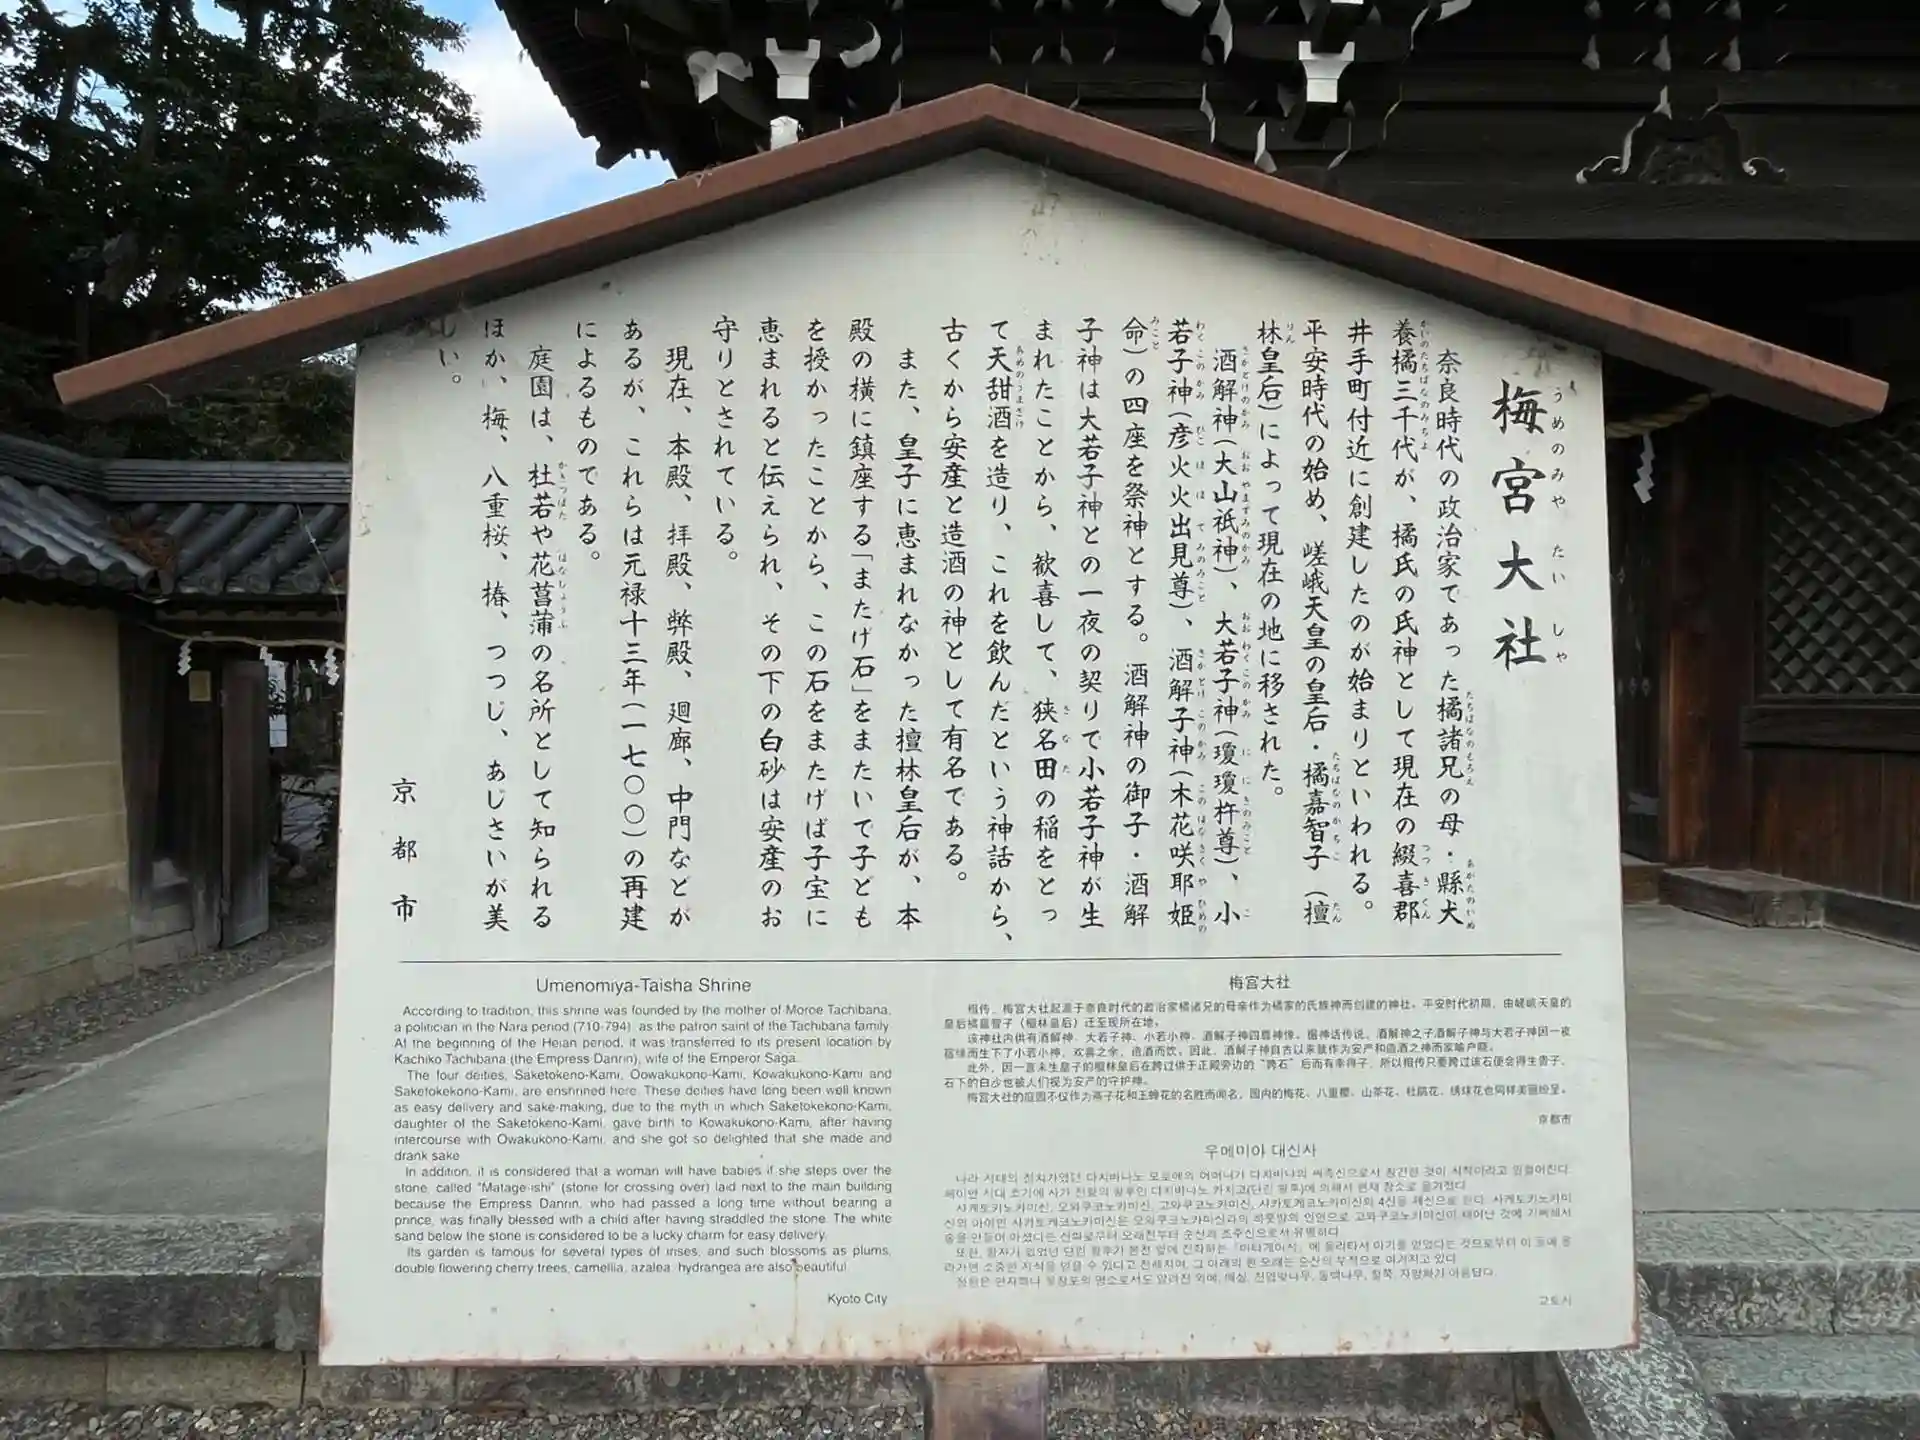 梅宮大社
うめのみやたいしゃ
奈良時代の政治家であった橘諸兄の母・縣犬
養橘三千代が、橘氏の氏神として現在の綴喜郡
井手町付近に創建したのが始まりといわれる。
平安時代の始め、嵯峨天皇の皇后・橘嘉智子（檀
林皇后）によって現在の地に移された。
酒解神（大山祇神）、大若子神（瓊瓊杵尊）、小
若子神（彦火火出見尊）、酒解子神（木花咲耶姫
命）の四座を祭神とする。酒解神の御子・酒解
子神は大若子神との一夜の契りで小若子神が生
まれたことから、歓喜して、狭名田の稲をとっ
て天甜酒を造り、これを飲んだという神話から、
古くから安産と造酒の神として有名である。
また、皇子に恵まれなかった檀林皇后が、本
殿の横に鎮座する「またげ石」をまたいで子ども
を授かったことから、この石をまたげば子宝に
恵まれると伝えられ、その下の白砂は安産のお
守りとされている。
現在、本殿、拝殿、弊殿、廻廊、中門などが
あるが、これらは元禄十三年（一七〇〇）の再建
によるものである。
庭園は、杜若や花菖蒲の名所として知られる
ほか、梅、八重桜、椿、つつじ、あじさいが美
しい。
京都市
Umenomiya-Taisha Shrine
According to tradition, this shrine was founded by the mother of Moroe Tachibana,
a politician in the Nara period (710-794), as the patron saint of the Tachibana family.
At the beginning of the Heian period, it was transferred to its present location by
Kachiko Tachibana (the Empress Danrin), wife of the Emperor Saga.
The four deities, Saketokeno-Kami, Oowakukono-Kami, Kowakukono-Kami and
Saketokekono-Kami, are enshrined here. These deities have long been well known
as easy delivery and sake-making, due to the myth in which Saketokekono-Kami,
daughter of the Saketokeno-Kami, gave birth to Kowakukono-Kami, after having
intercourse with Owakukono-Kami, and she got so delighted that she made and
drank sake
In addition, it is considered that a woman will have babies if she steps over the
stone, called "Matage-ishi" (stone for crossing over) laid next to the main building
because the Empress Danrin, who had passed a long time without bearing a
prince, was finally blessed with a child after having straddled the stone. The white
sand below the stone is considered to be a lucky charm for easy delivery.
Its garden is famous for several types of irises, and such blossoms as plums,
double flowering cherry trees, camellia, azalea, hydrangea are also beautiful.
Kyoto City
梅宫大社
相传，梅宫大社起源于奈良时代的政治家橘诸兄的母亲作为橘家的氏族神而创建的神社。平安时代初期，由嵯峨天皇的
皇后橘嘉智子（檀林皇后）迁至现所在地。
该神社内供有酒解神、大若子神、小若小神、酒解子神四尊神像。据神话传说，酒解神之子酒解子神与大若子神因一夜
宿缘而生下了小若小神，欢喜之余，造酒而饮。因此，酒解子神自古以来就作为安产和造酒之神而家喻户晓。
此外，因一直未生皇子的檀林皇后在跨过供于正殿旁边的“跨石”后而有幸得子，所以相传只要跨过该石便会得生贵子，
石下的白沙也被人们视为安产的守护神。
梅宫大社的庭园不仅作为燕子花和玉蝉花的名胜而闻名，园内的梅花、八重樱、山茶花、杜鹃花、绣球花也同样美丽纷呈。
京都市
우메미야 대신사
교토시